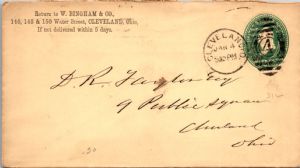 Return to W. BINGHAM & CO.,
146, 148 & 150 Water Street, CLEVELAND, Ohio,
If not delivered within 5 days.
CLEVELAND
JAN 4
PM
D. R. Taylor Esq
9 Public Square
Cleveland
Ohio